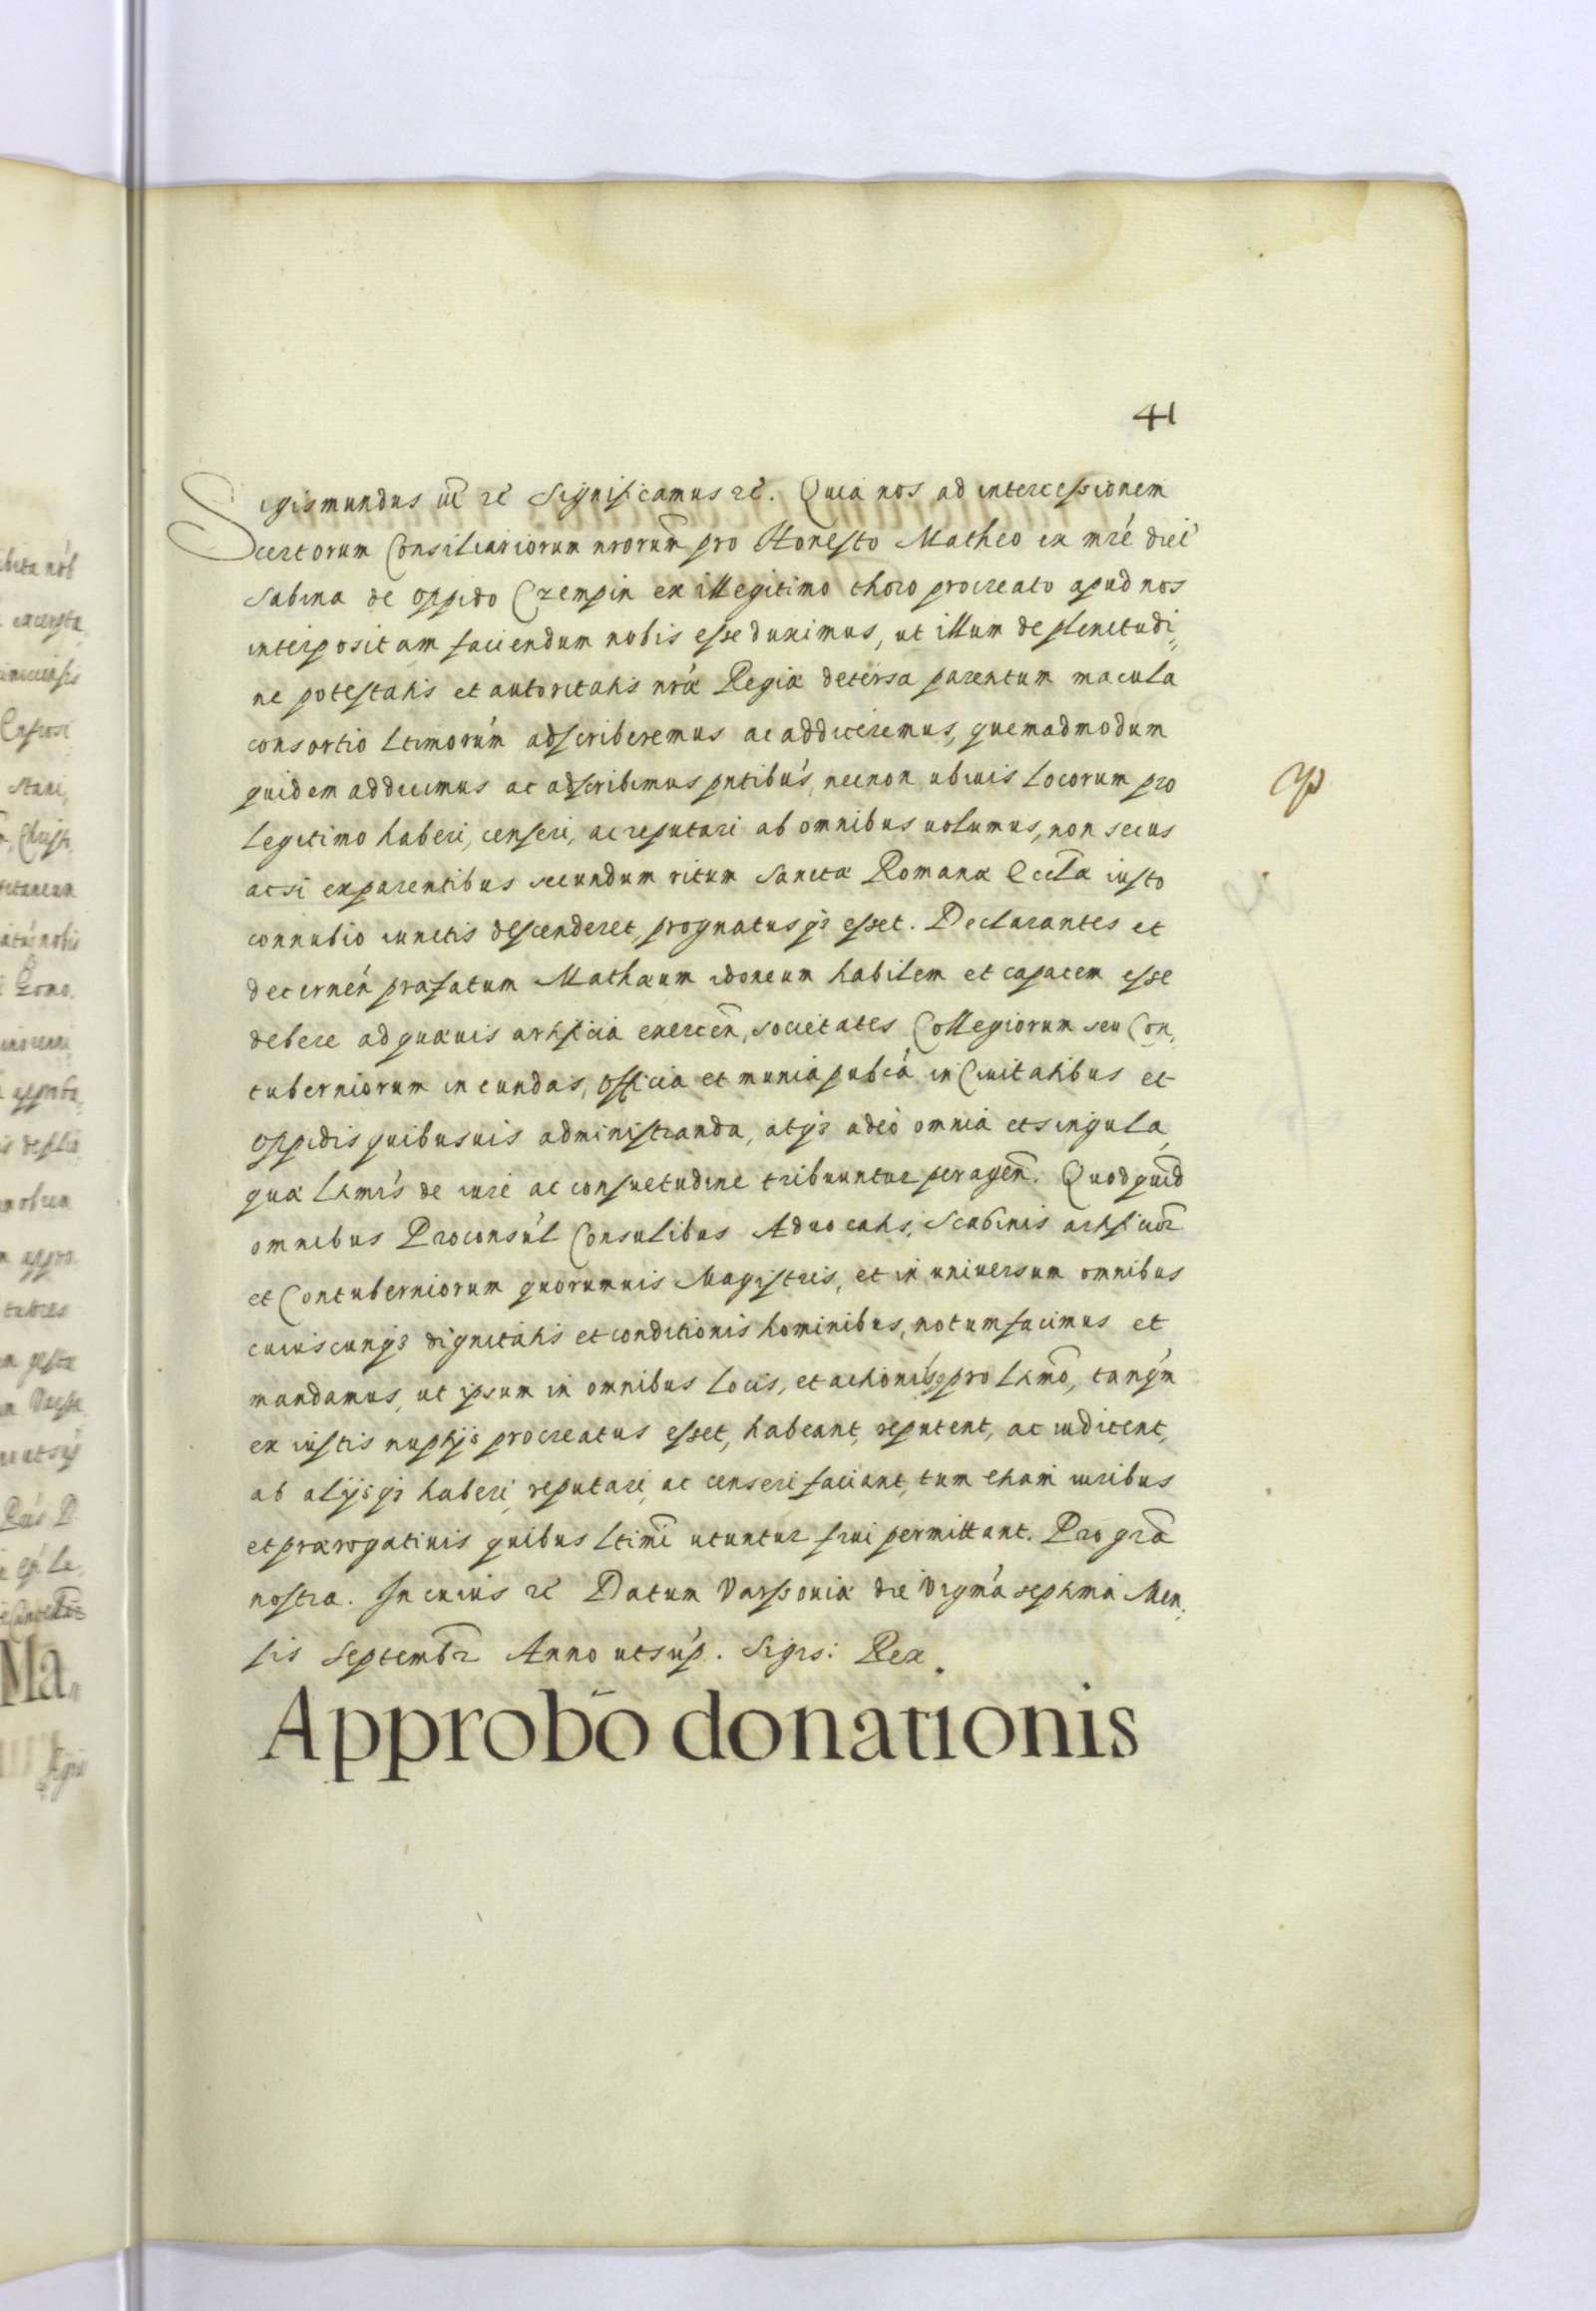 41
Sigismundus iii rē Significamus rē. Quia nos ad intercessionem
certorum Consiliariorum nrorum̄ pro Honesto Matheo ex mr̄e dicē
Sabina de oppido Czempin ex illegitimo thoro procreato apud nos
interpositam faciendum nobis esse duximus, ut illum de plenitudi,,
ne potestatis et autoritatis nrā Regiæ detersa parentum macula
consortio Ltimorum̄ adscriberemus ac addiceremus, quemadmodum
quidem addicimus ac adscribimus pn̄tibus, necnon ubiuis Locorum pro
Legitimo haberi, censeri, ac reputari ab omnibus uolumus, non secus
ac si ex parentibus secundum ritum Sanctæ Romanæ Eccl̄æ iusto
connubio iunctis descenderet, prognatusq3 esset. Declarantes et
decernēn præfatum Mathæum idoneum habilem et capacem esse
debere ad quæuis artificia exercēn, societates Collegiorum seu Con,,
tuberniorum ineundas, officia et munia pubcā in Ciuitatibus et
oppidis quibusuis administranda, atq3 adeò omnia et singula
quæ Ltimis de iure ac consuetudine tribuuntur peragēn. Quod quid̄
omnibus Proconsul̄ Consulibus Aduocatis, Scabinis artificior̄
et Contuberniorum quorumuis Magistris, et in uniuersum omnibus
cuiuscunq3 dignitatis et conditionis hominibus, notum facimus et
mandamus, ut ipsum in omnibus Locis, et actionib3 pro Ltimō, tanq̄m
ex iustis nuptijs procreatus esset, habeant, reputent, ac iudicent,
ab alijsq3 haberi, reputari, ac censeri faciant, tum etiam iuribus
et prærogatiuis quibus Ltimī utuntur frui permittant. Pro grā
nostra. In cuius rē Datum Varssouiæ die vigm̄a septima Men,,
sis Septembr̄ Anno ut sup̄. Sigis: Rex.
Approbo̅ donationis